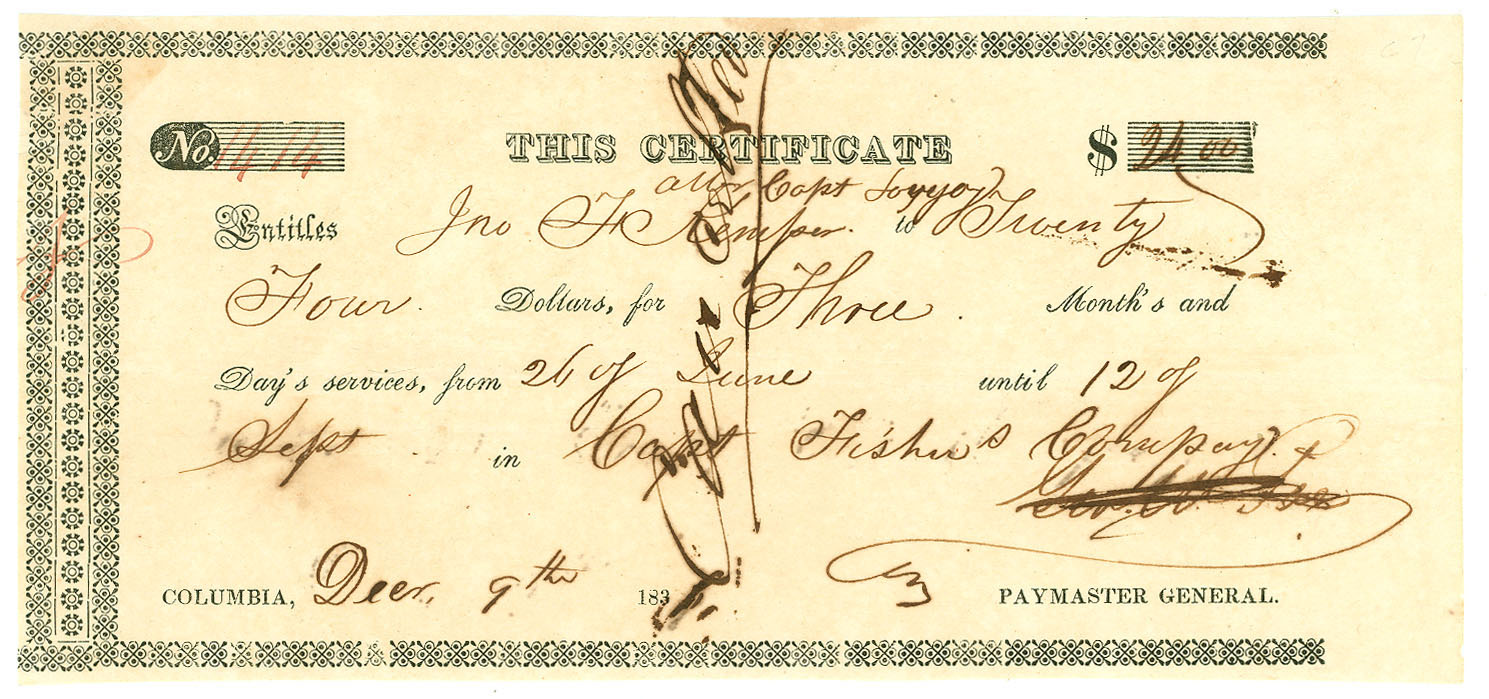 No. 1414 THIS CERTIFICATE $ 24 00
Capt
Entitles Jno F Kemper. to Twenty
Four. Dollars, for Three. Month's and
Day's services, from 26 of June until 12 of
Sept in Capt Fisher's Company.
COLUMBIA, Decr. 9th 183 PAYMASTER GENERAL.